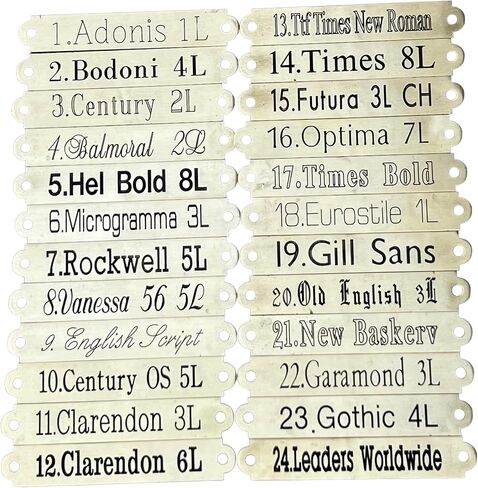 1.Adonis 1L
2.Bodoni 4L
3.Century 2L
4.Balmoral 2L
5.Hel Bold 8L
6.Microgramma 3L
7.Rockwell 5L
8.Vanessa 56 5L
9.English Script
10.Century OS 5L
11.Clarendon 3L
12.Clarendon 6L
13.Ttf Times New Roman
14.Times 8L
15.Futura 3L CH
16.Optima 7L
17.Times Bold
18.Eurostile 1L
19.Gill Sans
20.Old English 3L
21.New Baskerv
22.Garamond 3L
23.Gothic 4L
24.Leaders Worldwide